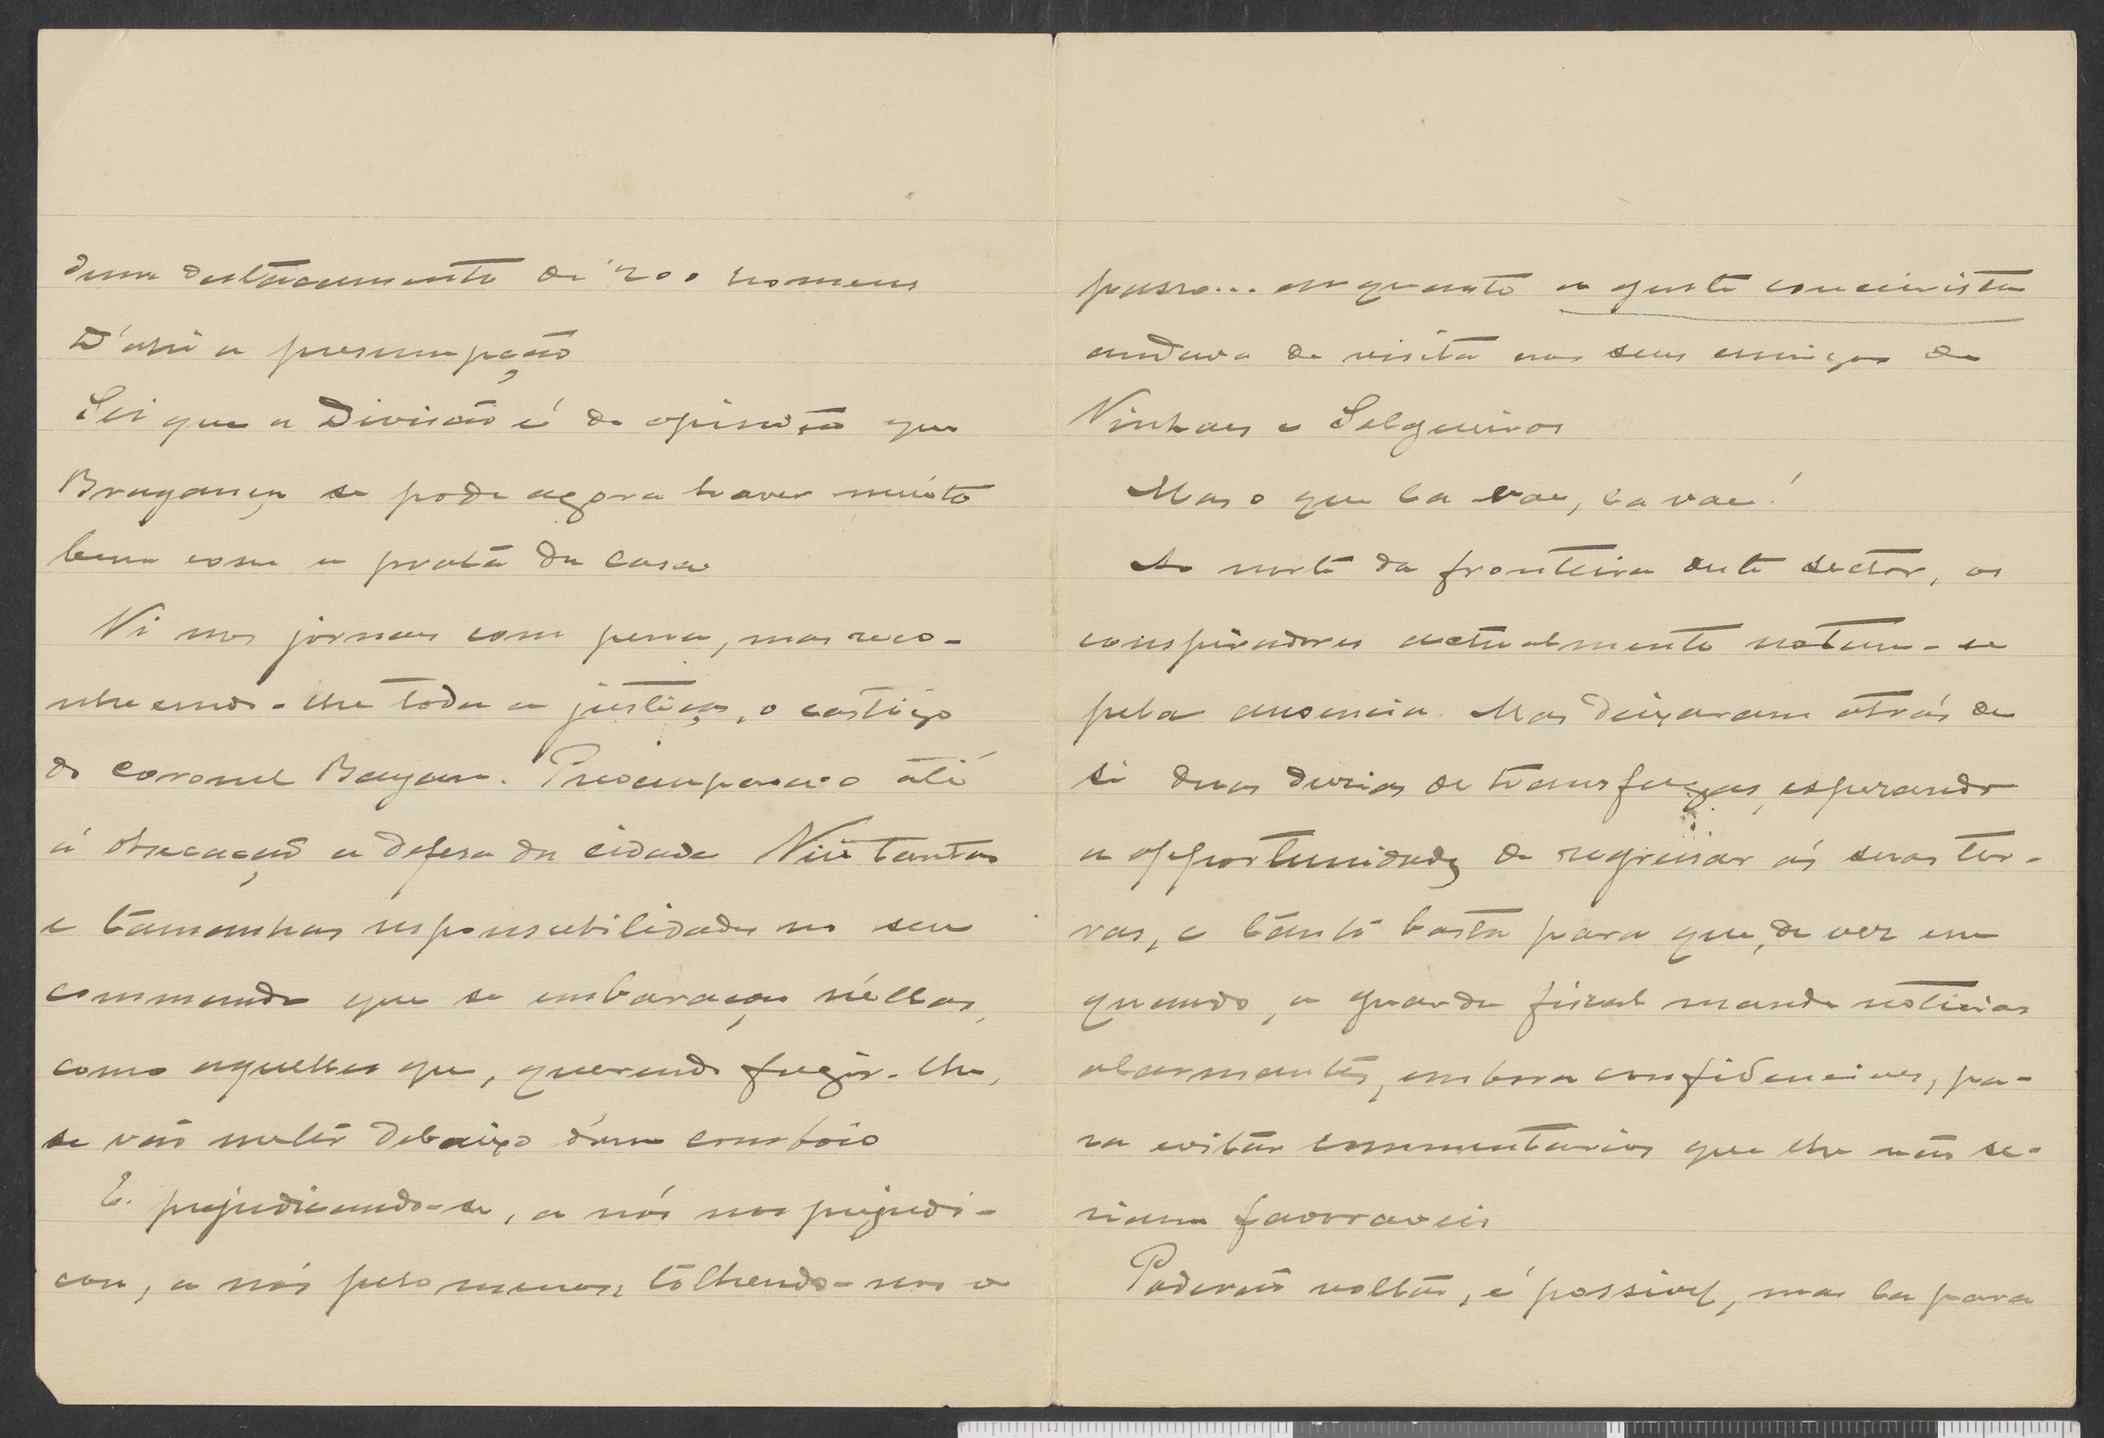 dum destacamento de 200 homens
D'ahi a presumpção
Sei que a Divisão é de opinião que
Bragança se pode agora haver muito
bem com a prata da casa
Vi nos jornaes com pena, mas reco-
nhecendo-lhe toda a justiça, o castigo
do coronel Preocupava-o até
á obsecação a defesa da cidade Viu tantas
e tamanhas responsabilidades no seu
commando que se embaraçou n'ellas,
como aquelles que, querendo fugir-lhe,
se vão meter debaixo d'um comboio
E. prejudicando-se, a nós nos prejudi-
cou, a nós pelo menos, tolhendo-nos o
passo... emquanto a gente couceirista
andava de visita aos seus amigos de
Vinhaes e Salgueiros
Mas o que la vae, la vae!
Ao norte da fronteira deste sector, os
conspiradores actualmente notam-se
pela ausencia. Mas deixaram atrás de
si duas duzias de transfugas, esperando
a opportunidade de regressar ás suas ter-
ras, e tanto basta para que, de vez em
quando, a guarda fiscal mande noticias
alarmantes, embora confidenciaes, pa-
ra evitar commentarios que lhe não se-
riam favoraveis
Poderão voltar, é possivel, mas la para